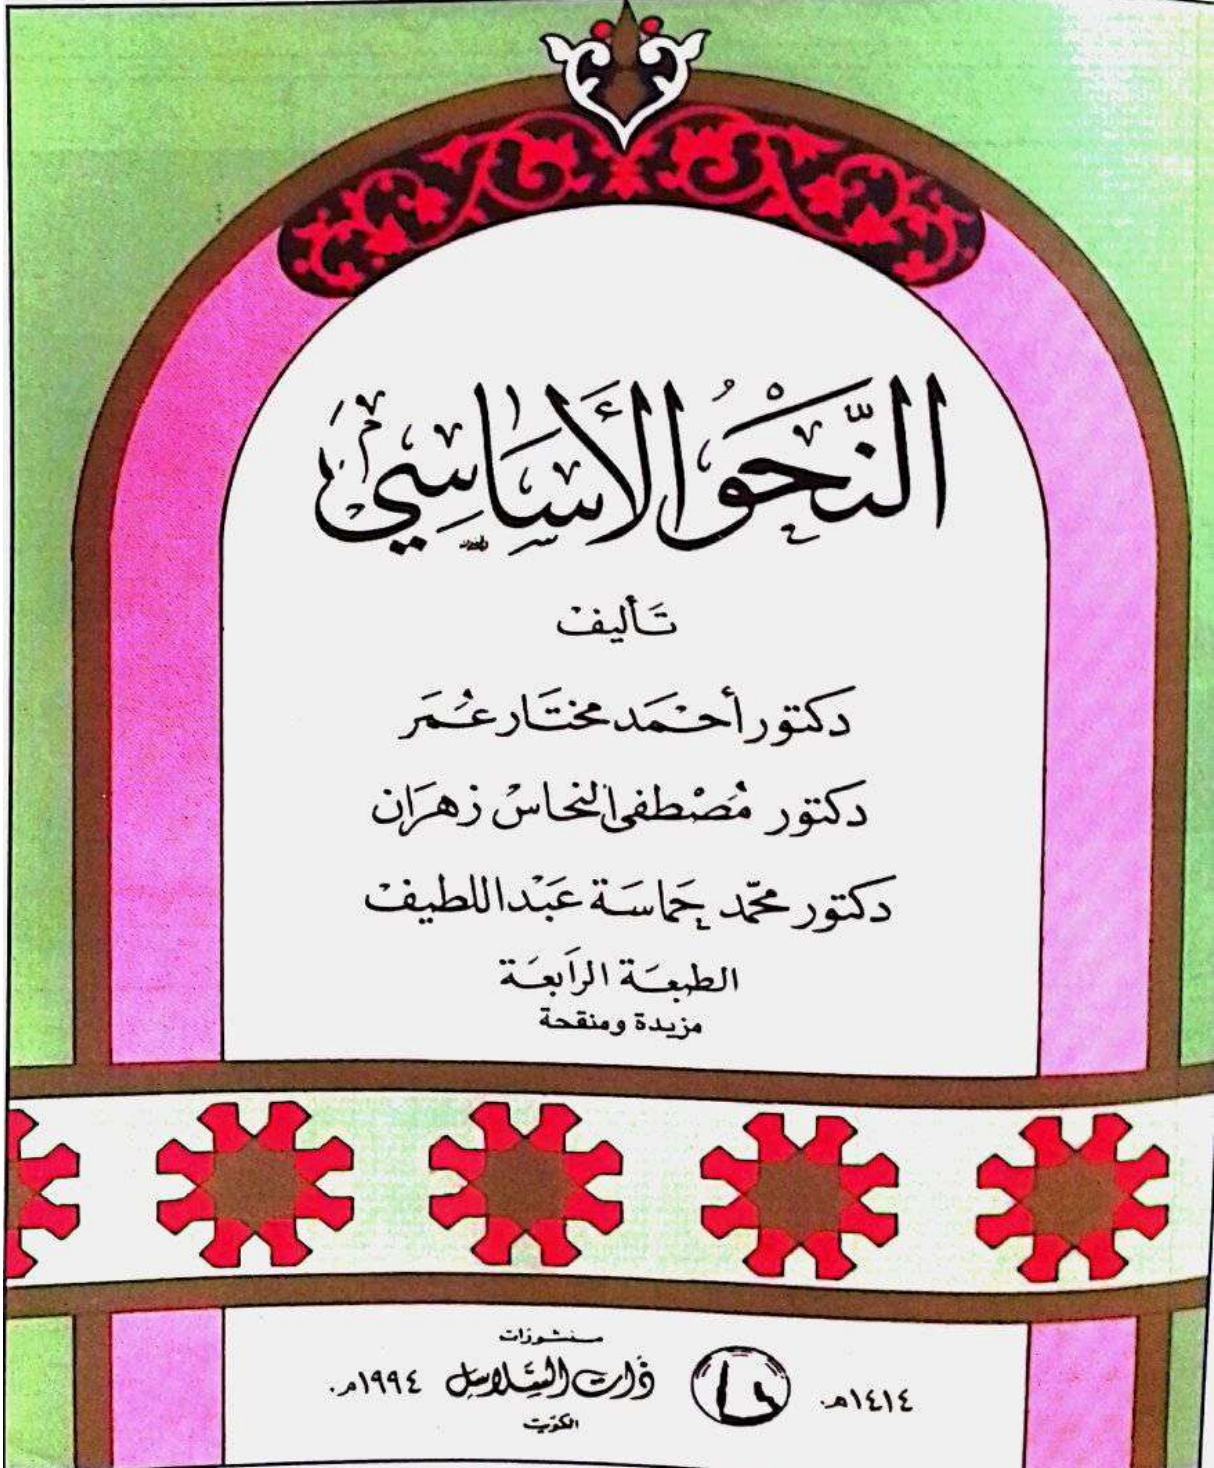 النَّحْوُ الأَسَاسِي
تَأليف
دكتور أحْمَد مختَار عُمَر
دكتور مُصْطفى النحاس زهرَان
دكتور محمّد حماسَة عَبْد اللطيف
الطبعَة الرَابعَة
مزيدة ومنقحة
منشورات
١٤١٤هـ. ذَات السَّلاسِل ١٩٩٤م.
الكوَيت